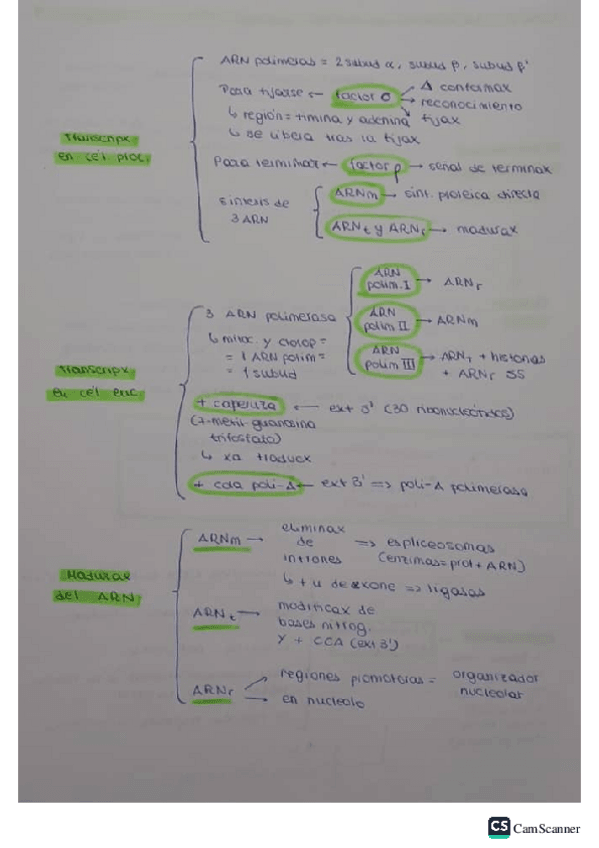 ARN polimeras = 2 subud α, subud β, subud β'
Para fijarse ← factor σ → Δ conformax
→ reconocimiento
→ fijax
↳ región = timina y adenina
↳ se libera tras la fijax
Transcripx
en cél proc.
Para terminar ← factor ρ → señal de terminax
síntesis de
3 ARN
ARNm → sínt. proteica directa
ARNt y ARNr → madurax
3 ARN polimerasa
ARN
polim. I → ARNr
ARN
polim II → ARNm
ARN
polim III → ARNt + histonas
+ ARNr 5S
↳ mitoc. y clorop =
= 1 ARN polim =
= 1 subud
Transcripx
en cél euc
+ caperuza ← ext 5' (30 ribonucleótidos)
(7-metil-guanosina
trifosfato)
↳ xa traducx
+ cola poli-A ← ext 3' => poli-A polimerasa
Madurax
del ARN
ARNm → eliminax
de
intrones => espliceosomas
(enzimas = prot + ARN)
↳ + u de exone => ligasas
ARNt → modificax de
bases nitrog.
y + CCA (ext 3')
ARNr → regiones promotoras = organizador
nucleolar
→ en nucleolo
CS CamScanner